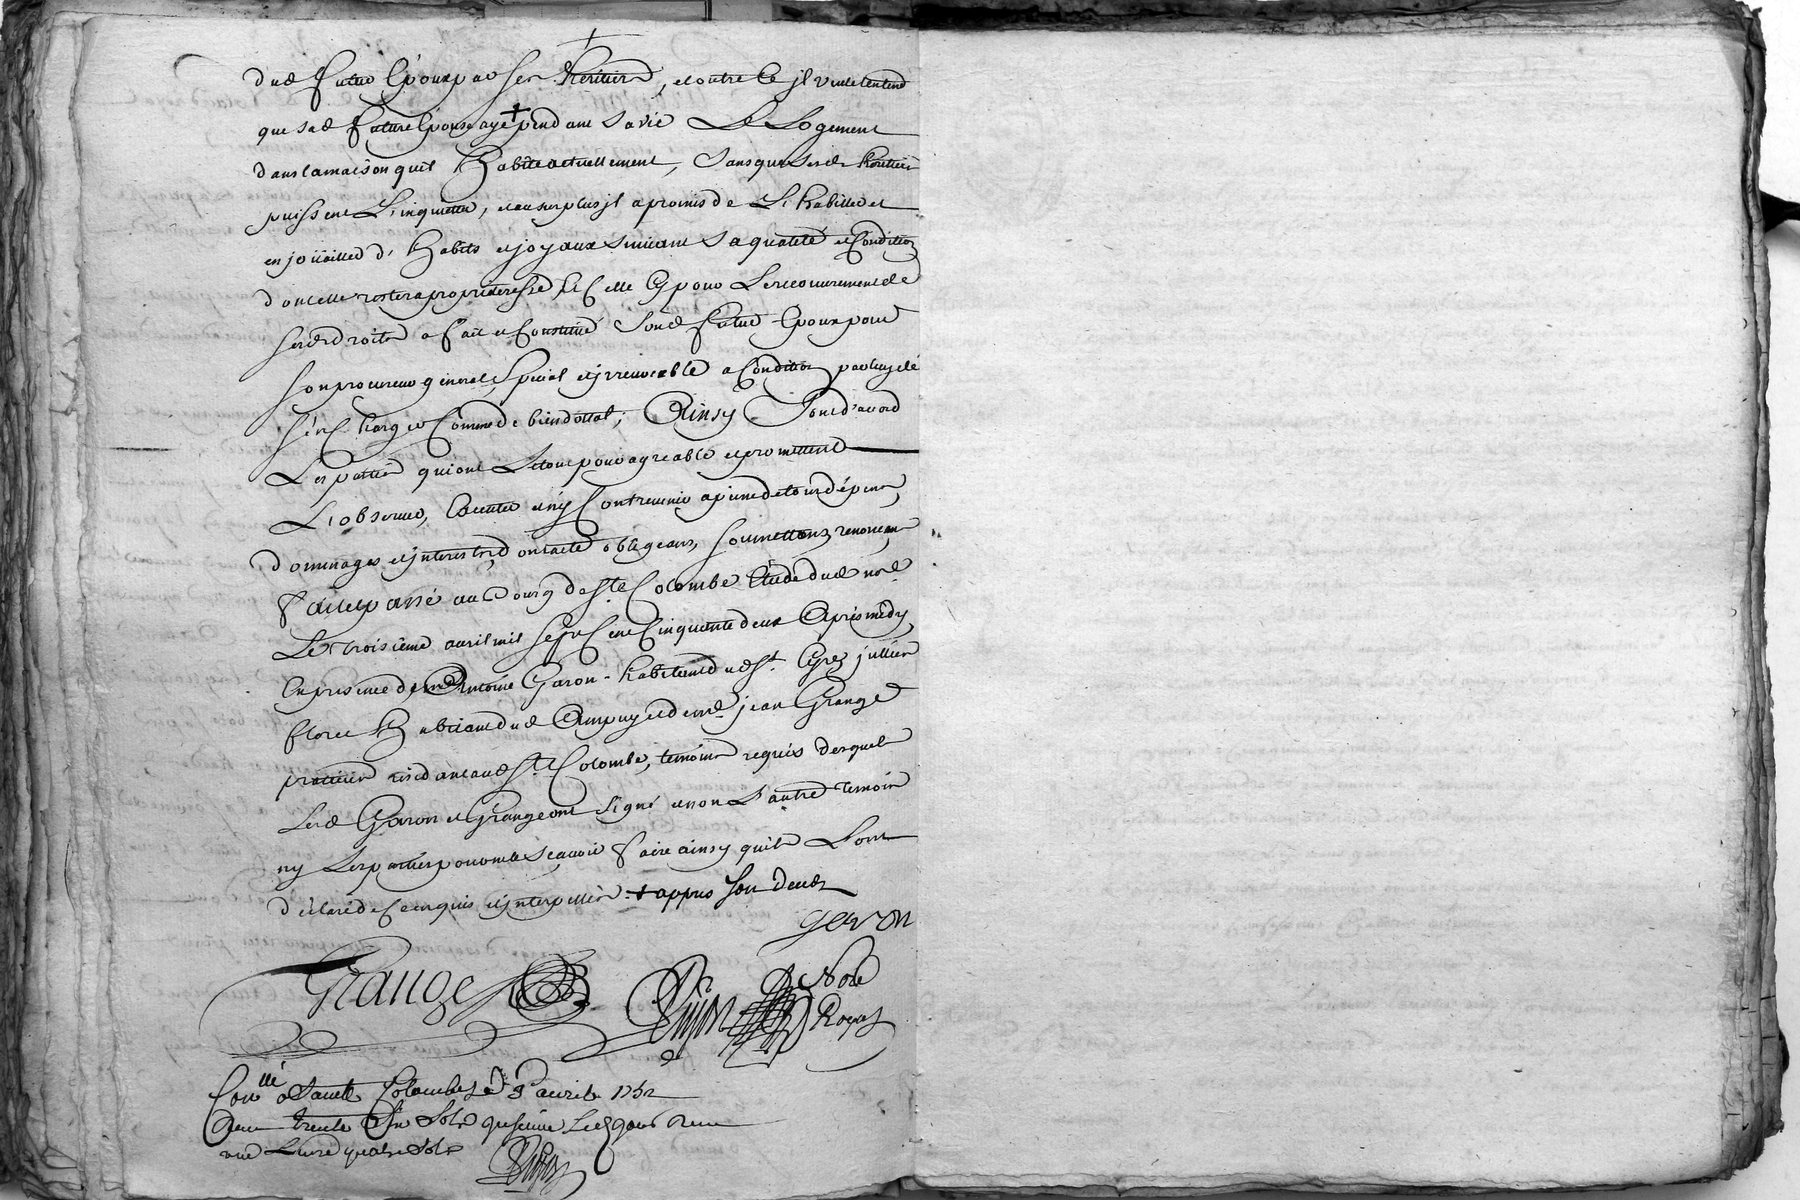 dud futur Epoux par ses heritiers, et outre ce jl veut entend
que sad future Epouse aye + pendant sa vie Le Logement
dans la maison quil habite actuellement, sans que sesds heritiers
puissent L'inquietter, et au surplus jl a promis de L'habiller et
enjoüailler d'habits et joyaux suivant sa qualité et Condition
dont elle restera proprieteresse Et Celle Cy pour Le recouvrement de
sesds droits a fait et Constitué sond futur Epoux pour
son procureur general, special et jrrevocable a Condition par luy de
s'en Charger Comme de bien dottal; Ainsy Sont d'acord
Les parties qui ont Le tout pour agreable et promettent
L'observer, Executer et n'y Contrevenir a peine de tous dépens,
dommages et jnterests, dont acte obligeans, soumettans, renonçans
fait et passé au Bourg de Ste Colombe Etude dud nore
Le troisième avril mil sept Cent Cinquante deux Après midy,
En presence de me Antoine Garon habitant dud St Cyr, jullien
florel habitant dud Ampuy et de me jean Grange
praticien residant aud Ste Colombe, temoins requis desquels
Lesd Garon et Grange ont signé et non L'autre temoin
ny Les parties pour ne Sçavoir faire ainsy quils L'ont
déclaré de Ce enquis et jnterpellés + appres son deces
garon
Grange
Nore
Royal
Conllé a Sainte Colombe Le 3e avril 1752
Reçu trente Six Sols
une Livre quatre sols